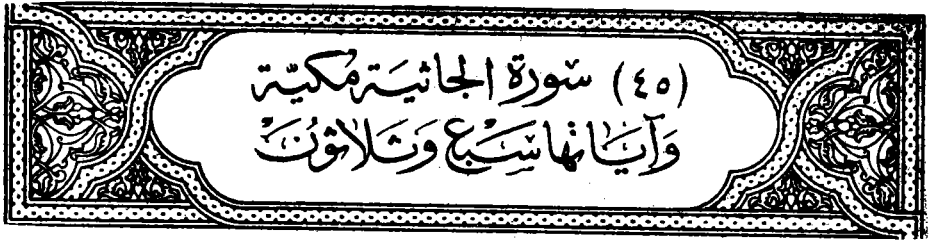 (٤٥) سورة الجاثية مكية
وَآيَاتها سَبْع وَثَلاثُونَ